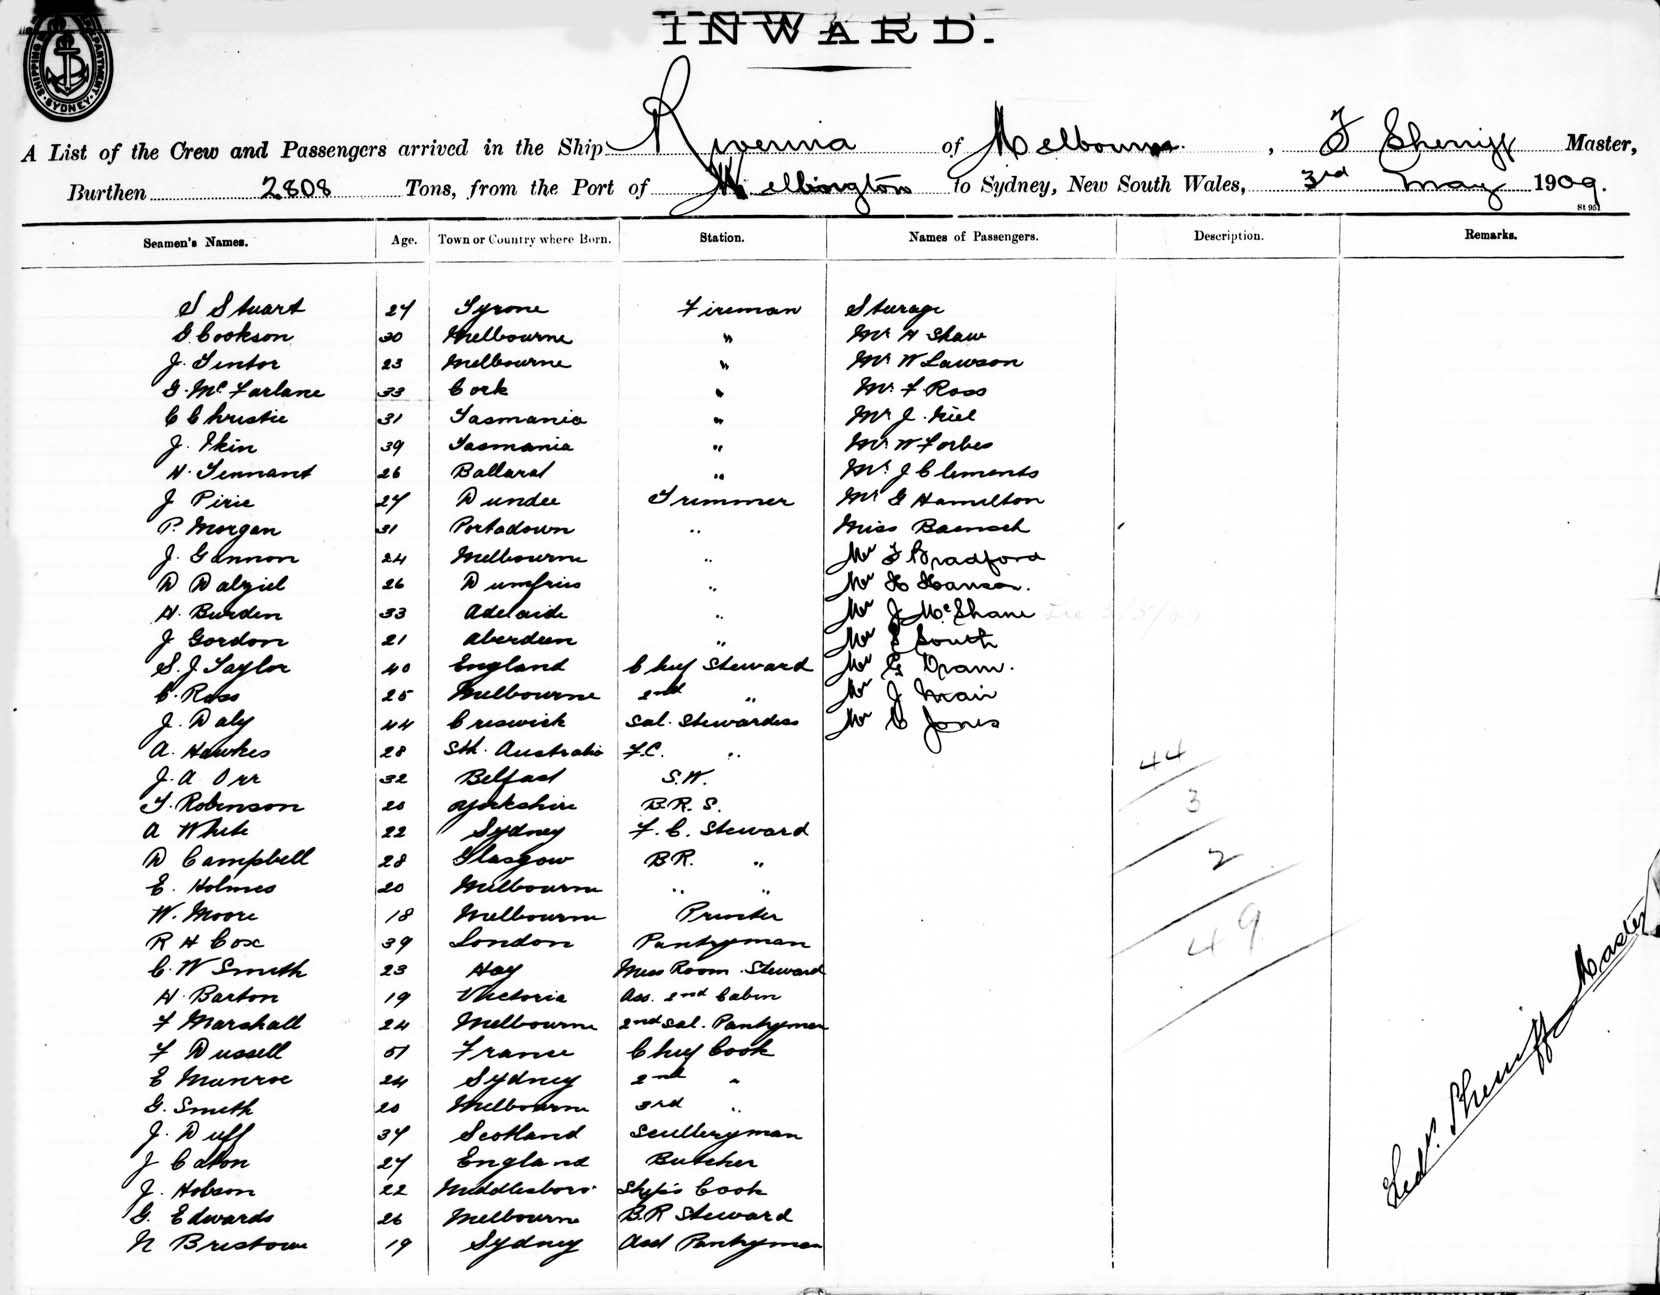 INWARD.
SHIPPING
DEPARTMENT
SYDNEY
A List of the Crew and Passengers arrived in the Ship Riverina of Melbourne, F Sherriff Master,
Burthen 2808 Tons, from the Port of Wellington to Sydney, New South Wales, 3rd May 1909.
St 951
Seamen's Names. Age. Town or Country where Born. Station. Names of Passengers. Description. Remarks.
S Stuart 27 Tyrone Fireman Sturage
G. Cookson 30 Melbourne " Mr. H Shaw
J. Tintor 23 Melbourne " Mr. W Lawson
G. McFarlane 33 Cork " Mr. F Ross
C Christie 31 Tasmania " Mr J. Niel
J. Ikin 39 Tasmania " Mr. W Forbes
H. Tennant 26 Ballarat " Mr. J Clements
J Pirie 27 Dundee Trimmer Mr G Hamilton
P. Morgan 31 Portadown " Miss
J. Gannon 24 Melbourne " Mr F Bradford
D Dalziel 26 Dumfries " Mr H Hanson.
H. Burden 33 Adelaide " Mr J McShane
J Gordon 21 Aberdeen " Mr S South
S. J Taylor 40 England Chief Steward Mr G Dram.
C. Ross 25 Melbourne 2nd " Mr J Mair
J. Daly 44 Creswick Sal. Stewardess Mr C Jones
A. Hawkes 28 Sth. Australia F.C. "
44
J. A Orr 32 Belfast S.W.
T. Robinson 20 Yorkshire B.R.S. 3
A White 22 Sydney F.C. Steward
D Campbell 28 Glasgow B.R. " 2
E. Holmes 20 Melbourne " "
W. Moore 18 Melbourne Printer
R H Cox 39 London Pantryman 49
C. W Smith 23 Hay Mess Room Steward
H. Barton 19 Victoria Ass. 2nd Cabin
F Marshall 24 Melbourne 2nd Sal. Pantryman
F Dussell 51 France Chief Cook
E Munroe 24 Sydney 2nd "
G. Smith 20 Melbourne 3rd "
J. Duff 37 Scotland Sculleryman
J Caton 27 England Butcher
J. Hobson 22 Middlesboro' Ship's Cook
G. Edwards 26 Melbourne B.R Steward
N Bristowe 19 Sydney Asst Pantryman
Fredk. Sherriff Master